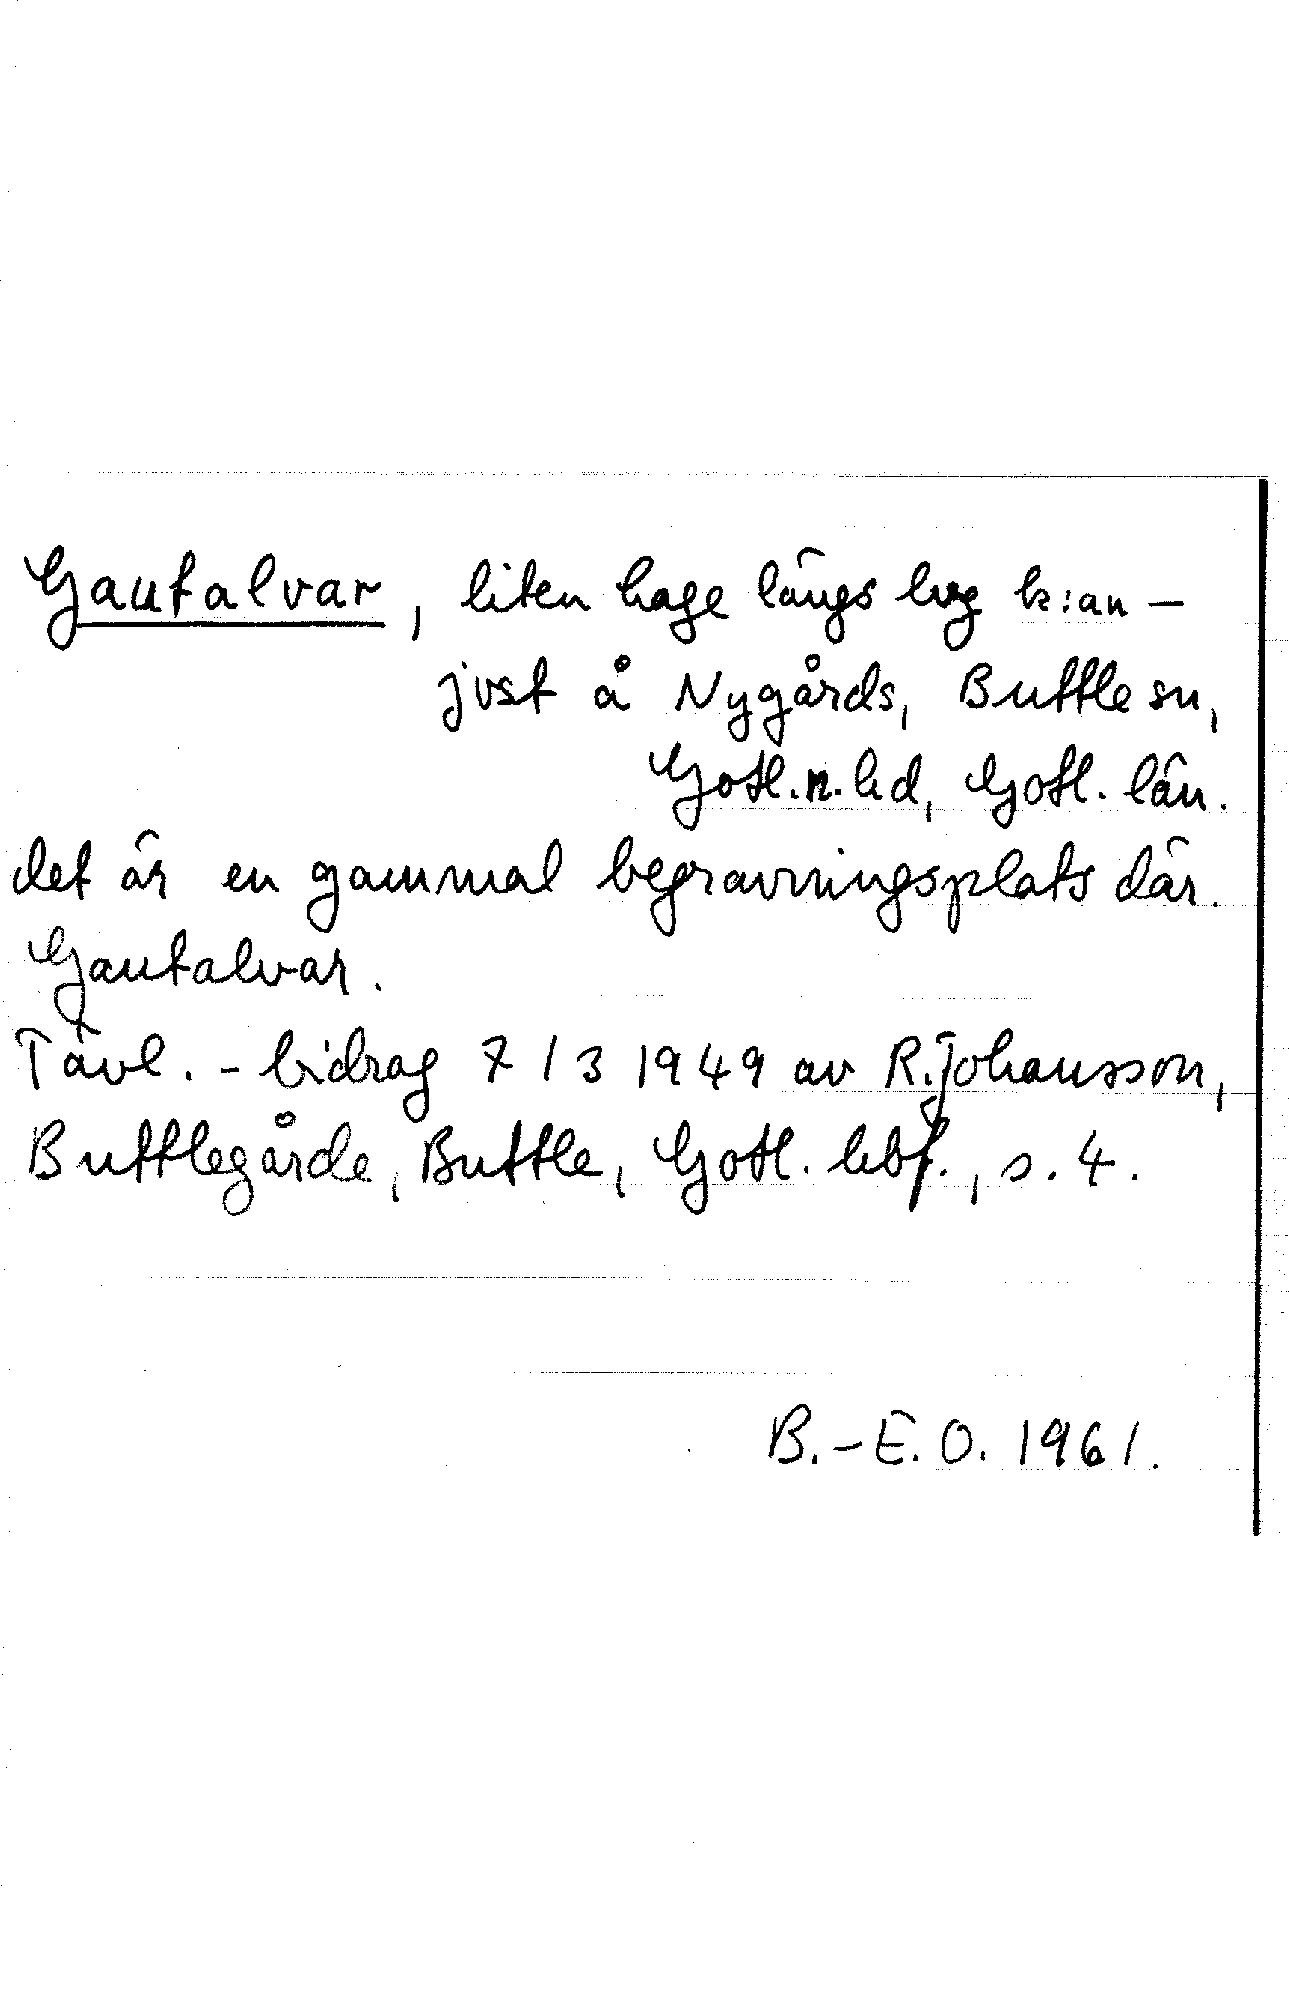 Gautalvar, liten hage längs lvg k:an –
just å Nygårds, Buttle sn,
Gotl. n. hd, Gotl. län.
det är en gammal begravningsplats där.
Gautalvar.
Tävl. - bidrag 7/3 1949 av R. Johansson,
Buttlegårde, Buttle, Gotl. hbf., s. 4.
B.-E. O. 1961.